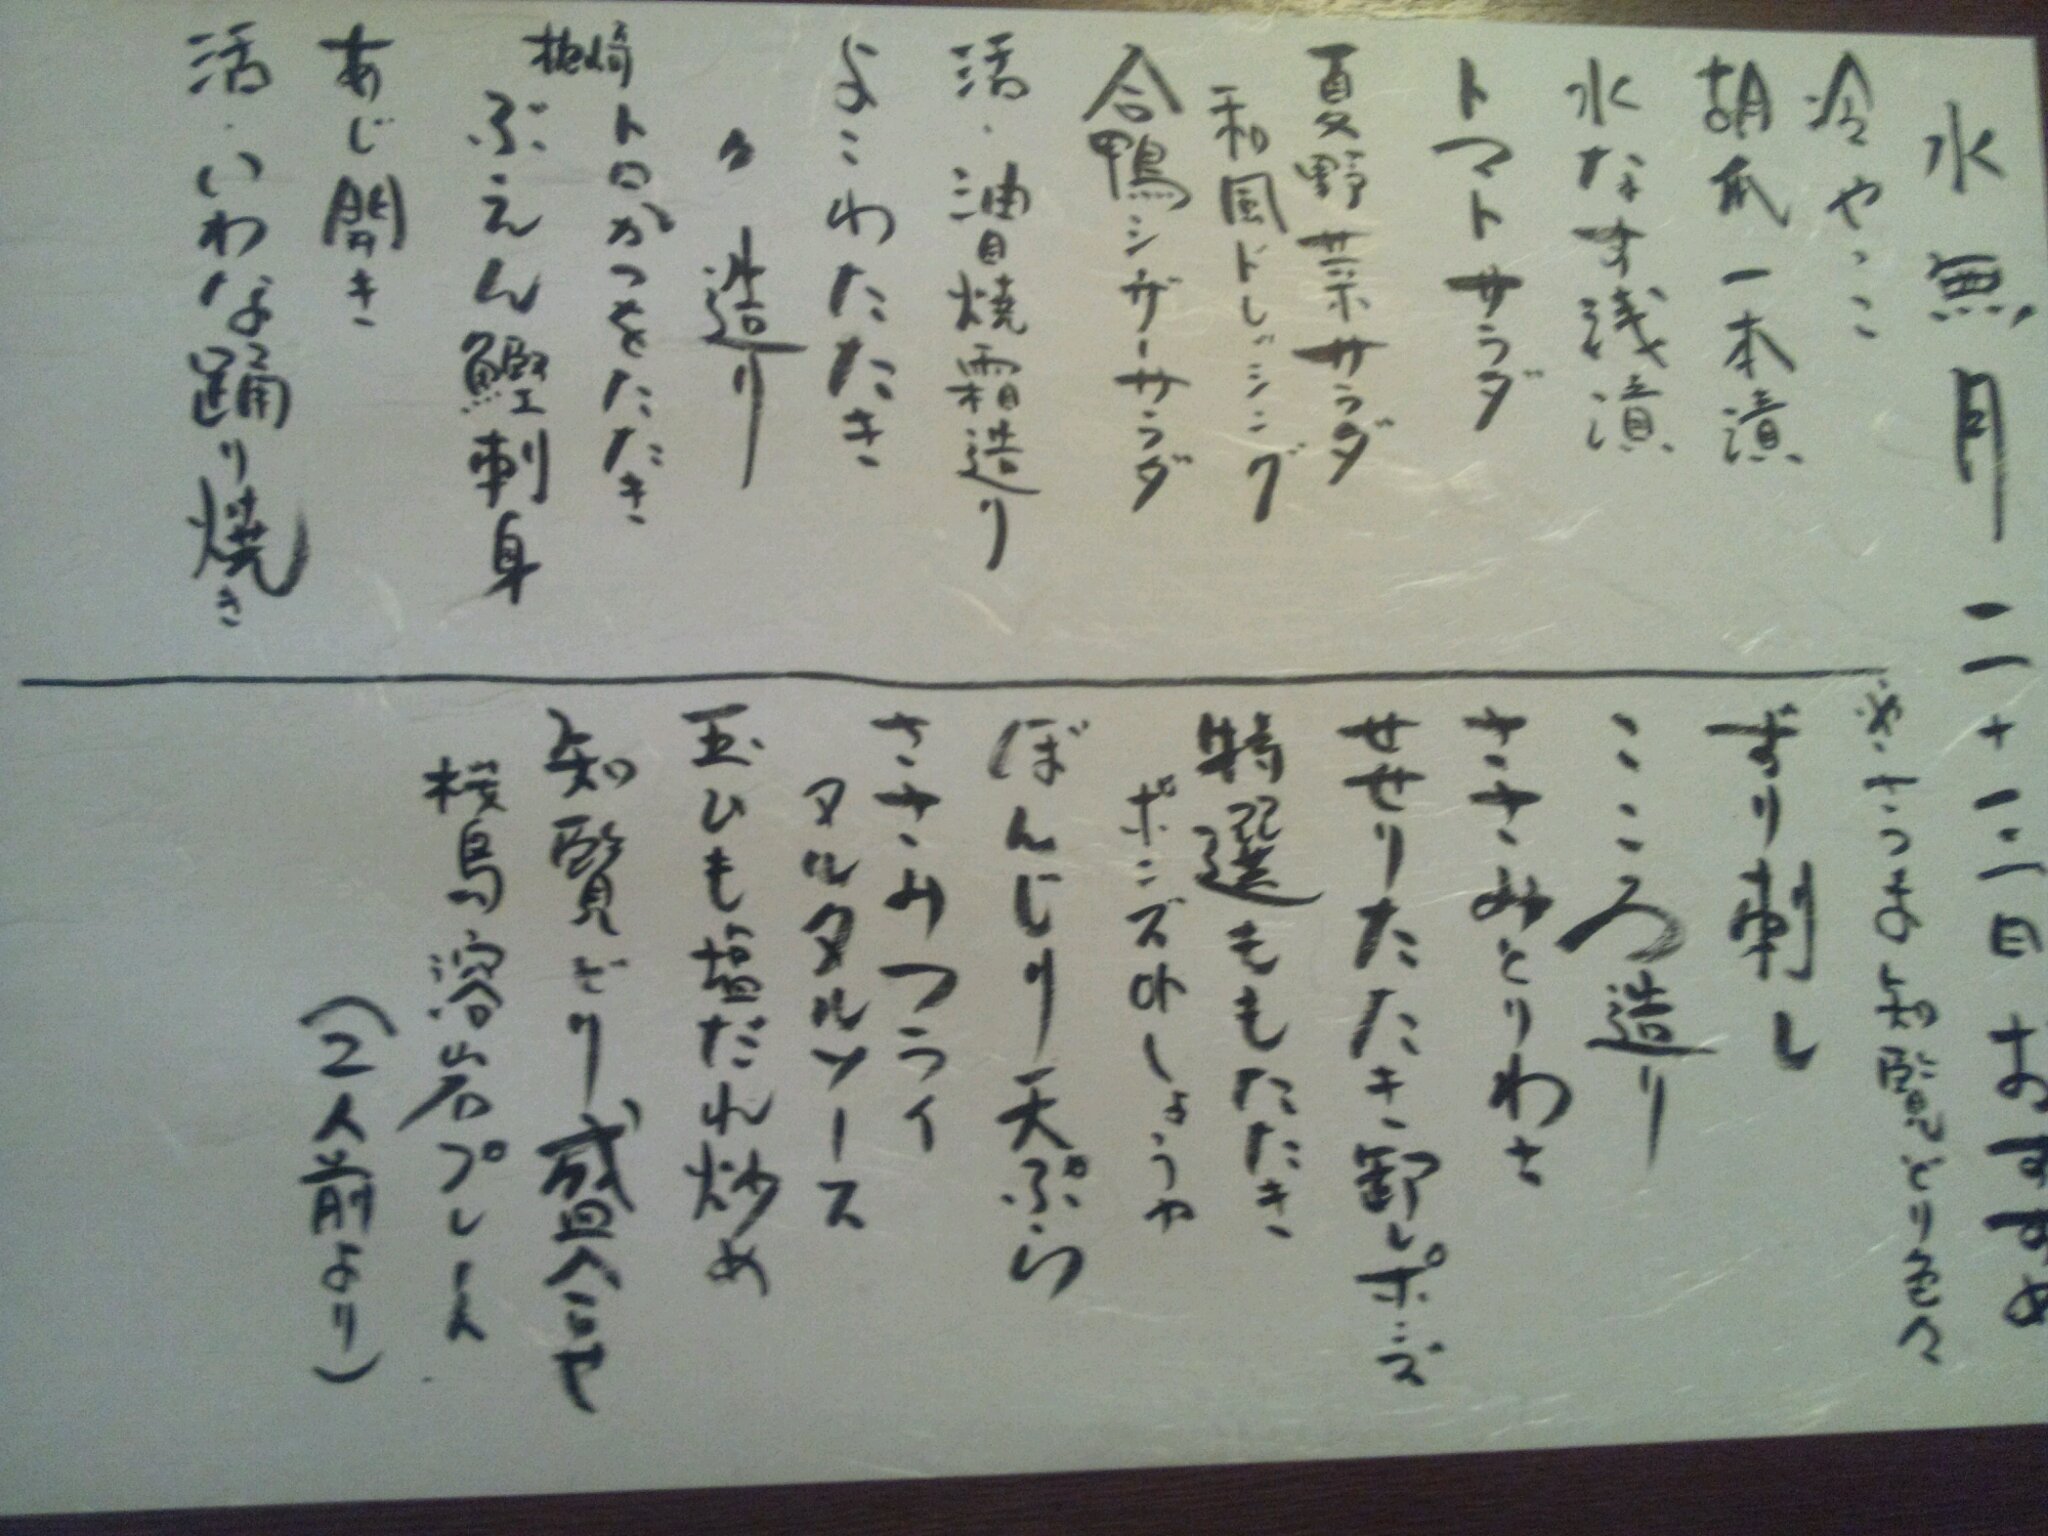 水無月二十三日おすすめ
冷やっこ
胡瓜一本漬
水なす浅漬
トマトサラダ
夏野菜サラダ
和風ドレッシング
合鴨シーザーサラダ
活・油目焼霜造り
よこわたたき
〃造り
枕崎トロかつをたたき
ぶえん鰹刺身
あじ開き
活・いわな踊り焼き
さつま知覧どり色々
ずり刺し
こころ造り
ささみとりわさ
せせりたたき卸しポンズ
特選ももたたき
ポンズorしょうゆ
ぼんじり天ぷら
ささみフライ
タルタルソース
玉ひも塩だれ炒め
知覧どり盛合せ
桜島溶岩プレート
(2人前より)